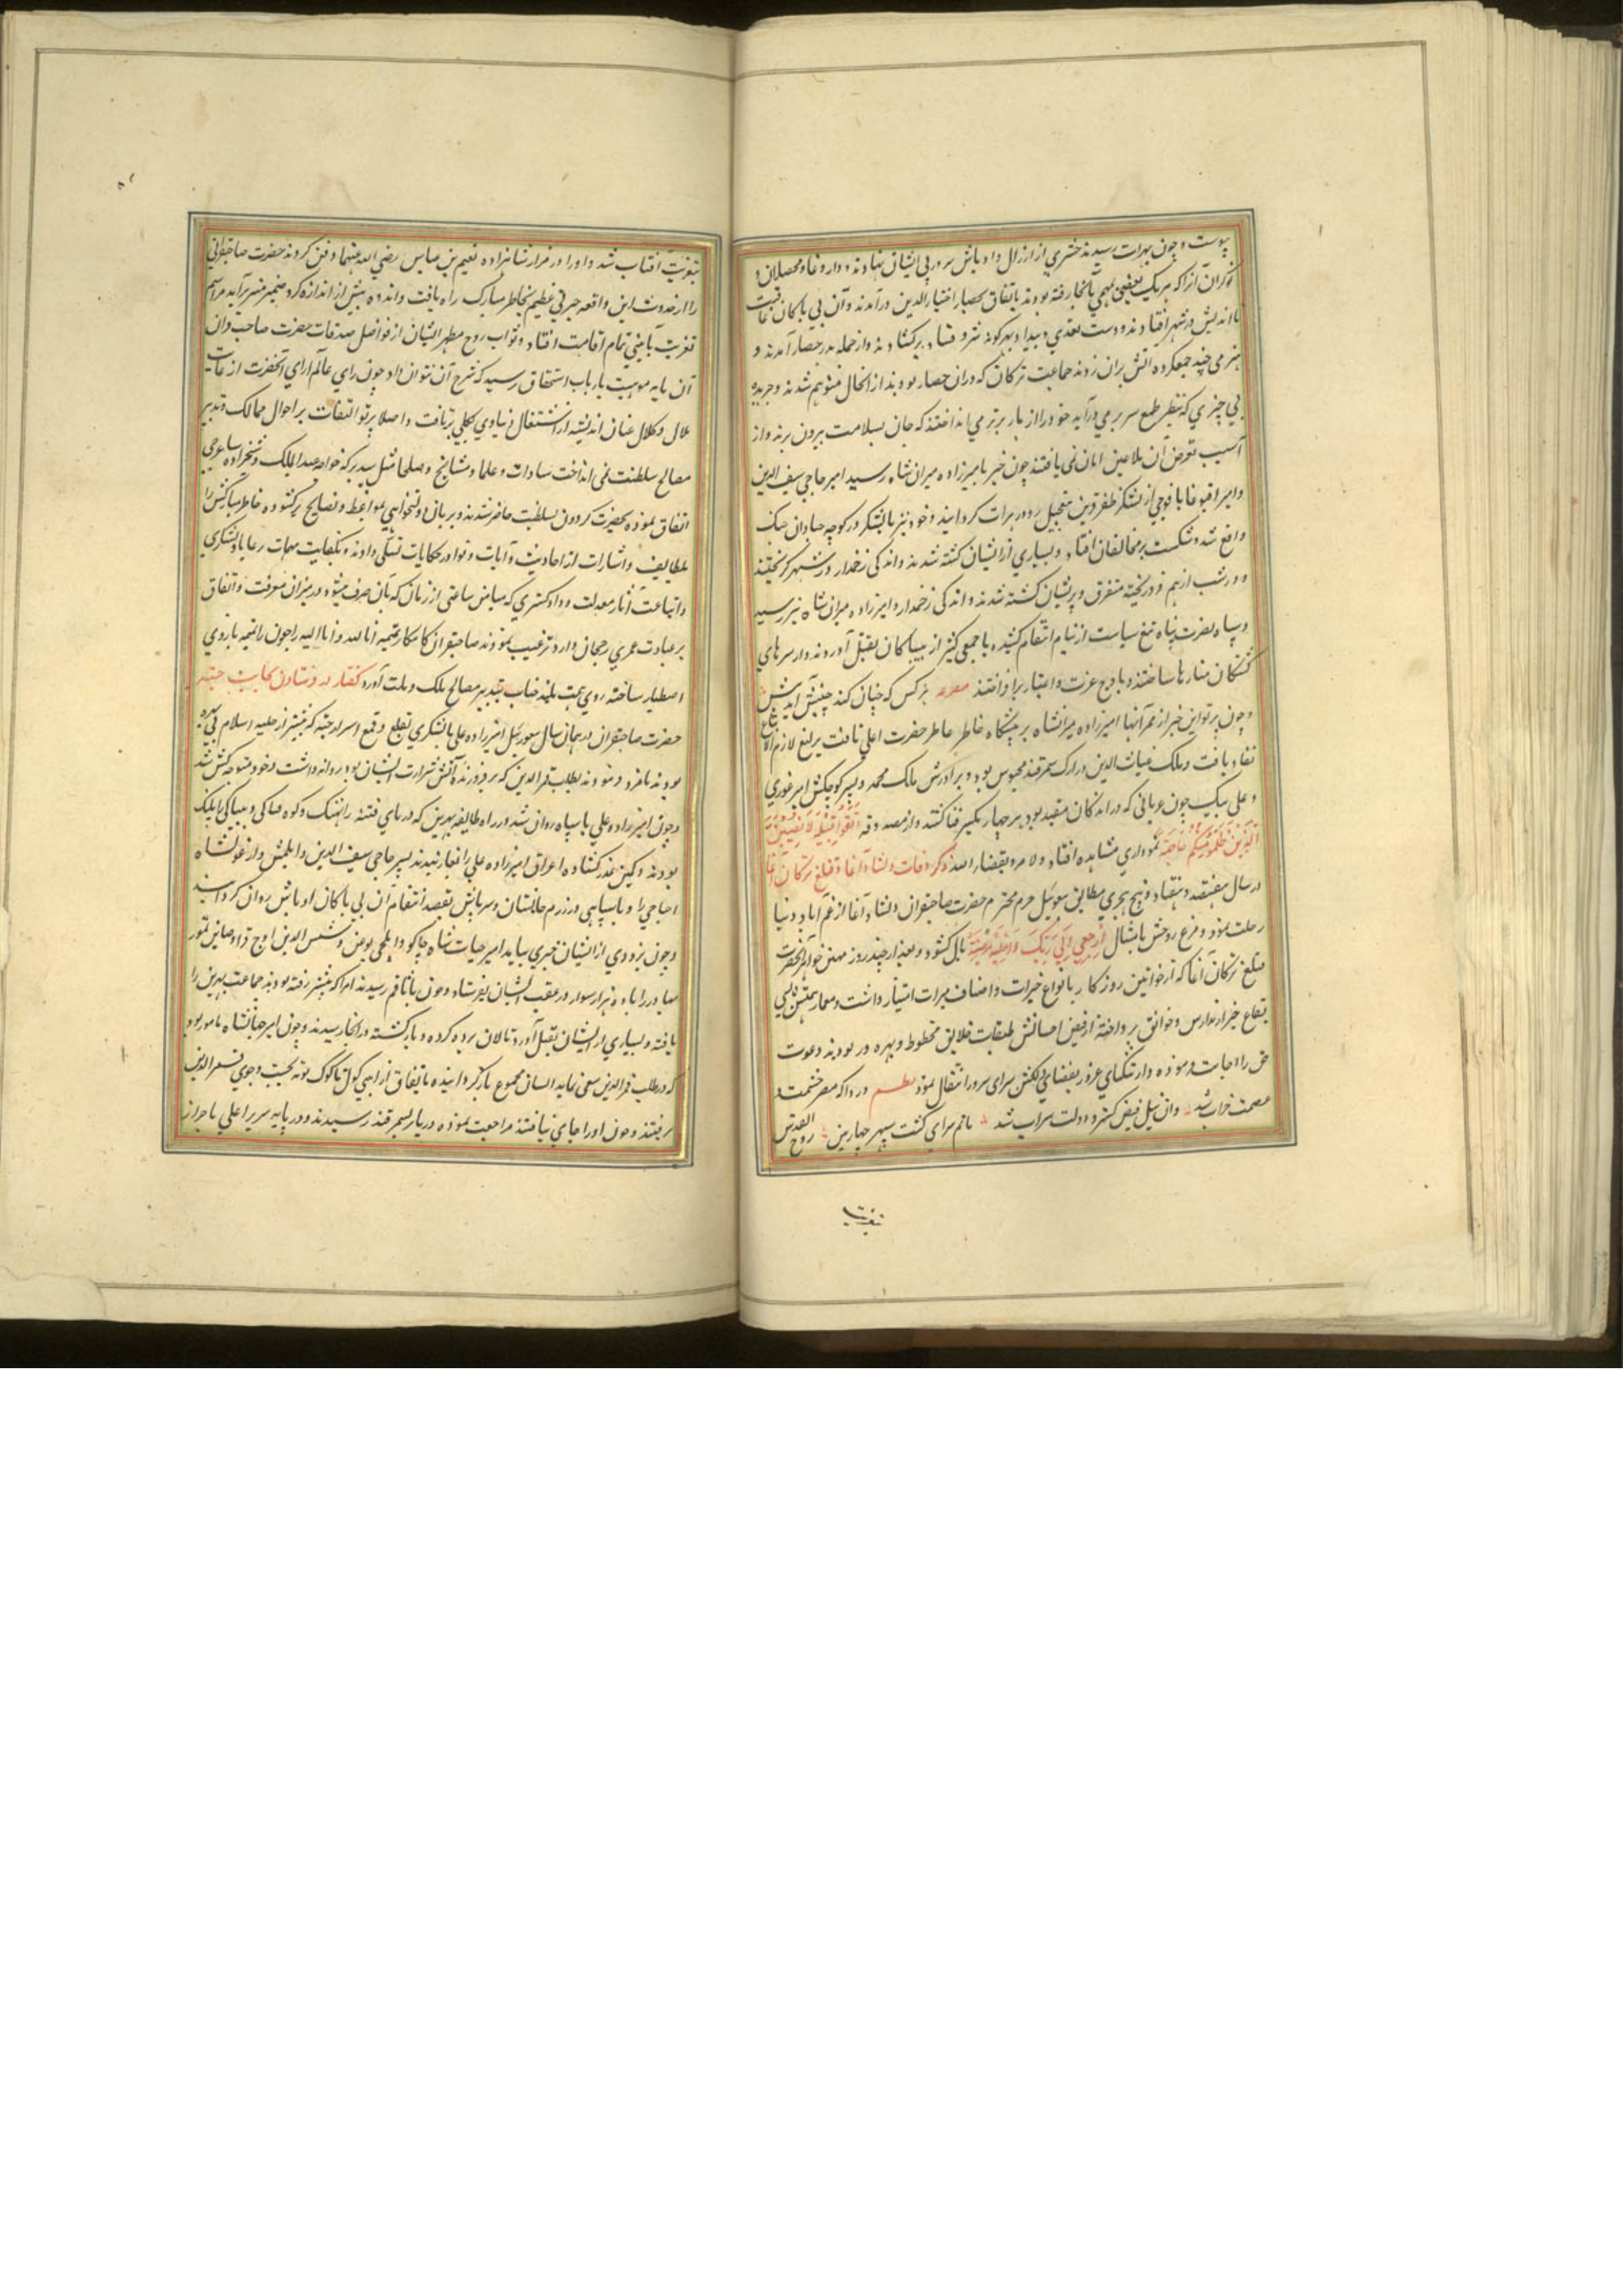 پیوست و چون بهرات رسیدند حشری از ارزال و اوباش سر در پی ایشان نهادند و داروغا و محصلان و
نوکران آنرا که هر یک بعضی مهمی بآنجا رفته بودند باتفاق بحصار اختیارالدین درآمدند و آن بی باکان عاقبت
نااندیش در شهر افتادند و دست تعدی و بیداد بهرگونه شر و فساد برکشادند و از جمله بدر حصار آمدند و
هیزمی چند جمعکرده آتش بران زدند جماعت ترکان که دران حصار بودند ازانحال متوهم شدند و
بی چیزی که بنظر طمع سر بر می درآید خود را از باره بزیر می انداختند که جان بسلامت بیرون برند و از
آسیب تعرض آن ملاعین امان نمی یافتند چون خبر بامیرزاده میران شاه رسید امیر حاجی سیف الدین
و امیر اقبوغا با فوجی از لشکر ظفر قرین بتعجیل روبراه هرات گردانید و خود نیز با لشکر در کوچه خیابان جنگ
واقع شد و شکست بر مخالفان افتاد و بسیاری از ایشان کشته شدند و اندکی زخمدار در شهر گریختند
و در شب از هم فرو ریخته متفرق و پریشان کشته شدند و اندکی زخمدار و امیرزاده میران شاه نیز رسید
و سپاه نصرت پناه تیغ سیاست از نیام انتقام کشیده با جمعی کثیر از بیباکان بقتل آوردند و از سرهای
کشتگان منارها ساختند و باوج عزت و اعتبار برافراختند مصرعه هر کس که چنان کند چنینش آید پیش
و چون پرتو این خبر از عمر آنها امیرزاده میرانشاه بر پیشگاه خاطر عاطر حضرت اعلی تافت یرلیغ لازم الاتباع
نفاذ یافت و ملک غیاث الدین در ارک سمرقند محبوس بود و برادرش ملک محمد و پسر کوچکش امیر غوری
و علی بیک جون غربانی که در اندکان مقید بود بر چهار تکبیر فنا گفتند و از مصدوقه اتَّقُوا فِتْنَةً لَا تُصِيبَنَّ
الَّذِينَ ظَلَمُوا مِنْكُمْ خَاصَّةً نموداری مشاهده افتاد و لا مرد بقضاء الله ذکر وفات دلشاد آغا و قتلغ ترکان آغا
در سال هفتصد و هفتاد و پنج هجری مطابق سوییل حرم محترم حضرت صاحبقران دلشاد آغا از غم آباد دنیا
رحلت نمود و مرغ روحش بامتثال ارْجِعِي إِلَى رَبِّكِ رَاضِيَةً مَرْضِيَّةً بال کشود و بعد از چند روز مهین خواهر آنحضرت
قتلغ ترکان آغا که از خواتین روزکار بانواع خیرات و اصناف مبرات امتیاز داشت و معمار همتش بنای
بقاع خیر از مدارس و خوانق پرداخته از فیض احسانش طبقات خلایق محظوظ و بهره ور بودند دعوت
حق را اجابت نموده و از تنکنای غرور بفضای کلشن سرای سرور انتقال نمود نظـــم دردا که مصر حشمت و
عصمت خراب شد وان نیل فیض کستر دولت سراب شد ماتم سرای کشت سپهر چهارمین روح القدس
بتعزیت
بتعزیت آفتاب شد و او را در مزار شاهزاده قثم بن عباس رضی الله عنهما دفن کردند حضرت صاحبقرانی
را از حدوث این واقعه حیرتی عظیم بخاطر مبارک راه یافت و اندوه بیش از اندازه کرد ضمیر منیر برآید مراسم
تعزیت بآیینی تمام اقامت افتاد و ثواب روح مطهر ایشان از فواضل صدقات حضرت صاحب قران
آن مایه موهبت بارباب استحقاق رسید که شرح آن نتوان داد چون رای عالم آرای آنحضرت از غایت
ملال و کلال عنان اندیشه از اشتغال دنیاوی بکلی برتافت و اصلا پرتو التفات بر احوال ممالک و تدبیر
مصالح سلطنت نمی انداخت سادات و علما و مشایخ و صلحا مثل سید برکه خواجه عبدالملک و شیخزاده ساغرجی
اتفاق نموده بحضرت گردون بسطت حاضر شدند و بزبان دولتخواهی بمواعظ و نصایح برکشوده خاطر مبارکش را
بلطایف و اشارات از احادیث و آیات و نوادر حکایات تسلی دادند و بکفایت مهمات رعایا و لشکری
و اتباعت آثار معدلت و دادکستری که میامن ساعتی از زمان که بآن صرف میشود در میزان معرفت و اتفاق
بر عبادت عمری رجحان دارد ترغیب نمودند صاحبقران کامکار تتمیه انا لله و انا الیه راجعون را تتمه بازوی
اصطبار ساخته روی همت بلند جناب بتدبیر مصالح ملک و ملت آورد گفتار در فرستادن بجانب جته
حضرت صاحبقران در همان سال سوریل امیرزاده علی با لشکری بقلع و قمع اسراء جته که بیشتر از حلیه اسلام بی بهره
بودند نامزد فرمودند بطلب قمرالدین که بر فروزنده آتش شرارت ایشان بود روانه داشت و خود متوجه کش شد
و چون امیرزاده علی با سپاه روان شد در راه طایفه بهرین که دریای فتنه را نهنک و کوه فتاکی و بیباکی را پلنک
بودند و کمین غدر کشاده اعراق امیرزاده علی را بغارتیدند پسر حاجی سیف الدین و ایلمش و ارغونشاه
احتاجی را و با سپاهی در رزم جانستان و سربازش بقصد انتقام آن بی باکان اوباش روان کردانید
و چون بزودی از ایشان خبری بیاید امیر حیات شاه چاکو و ایلچی بوغن و شمس الدین اوج قرا و صاین تمور
بهادر را با ده هزار سوار در عقب ایشان بفرستاد و چون باتاقم رسیدند امرا که پیشتر رفته بودند جماعت بهرین را
یافته و بسیاری از ایشان بقتل آورد و تالان برده کرده و بازکشته در انجا رسیدند و چون امیر جهانشاه مامور بود
که در طلب قمرالدین سعی نماید ایشان مجموع بازگردانیده باتفاق از ایبی کول تا کوک توبه بجست وجوی قمرالدین
برفتند و چون او را جای نیافتند مراجعت نموده در پار سمرقند رسیدند و در پایه سریر اعلی باحراز